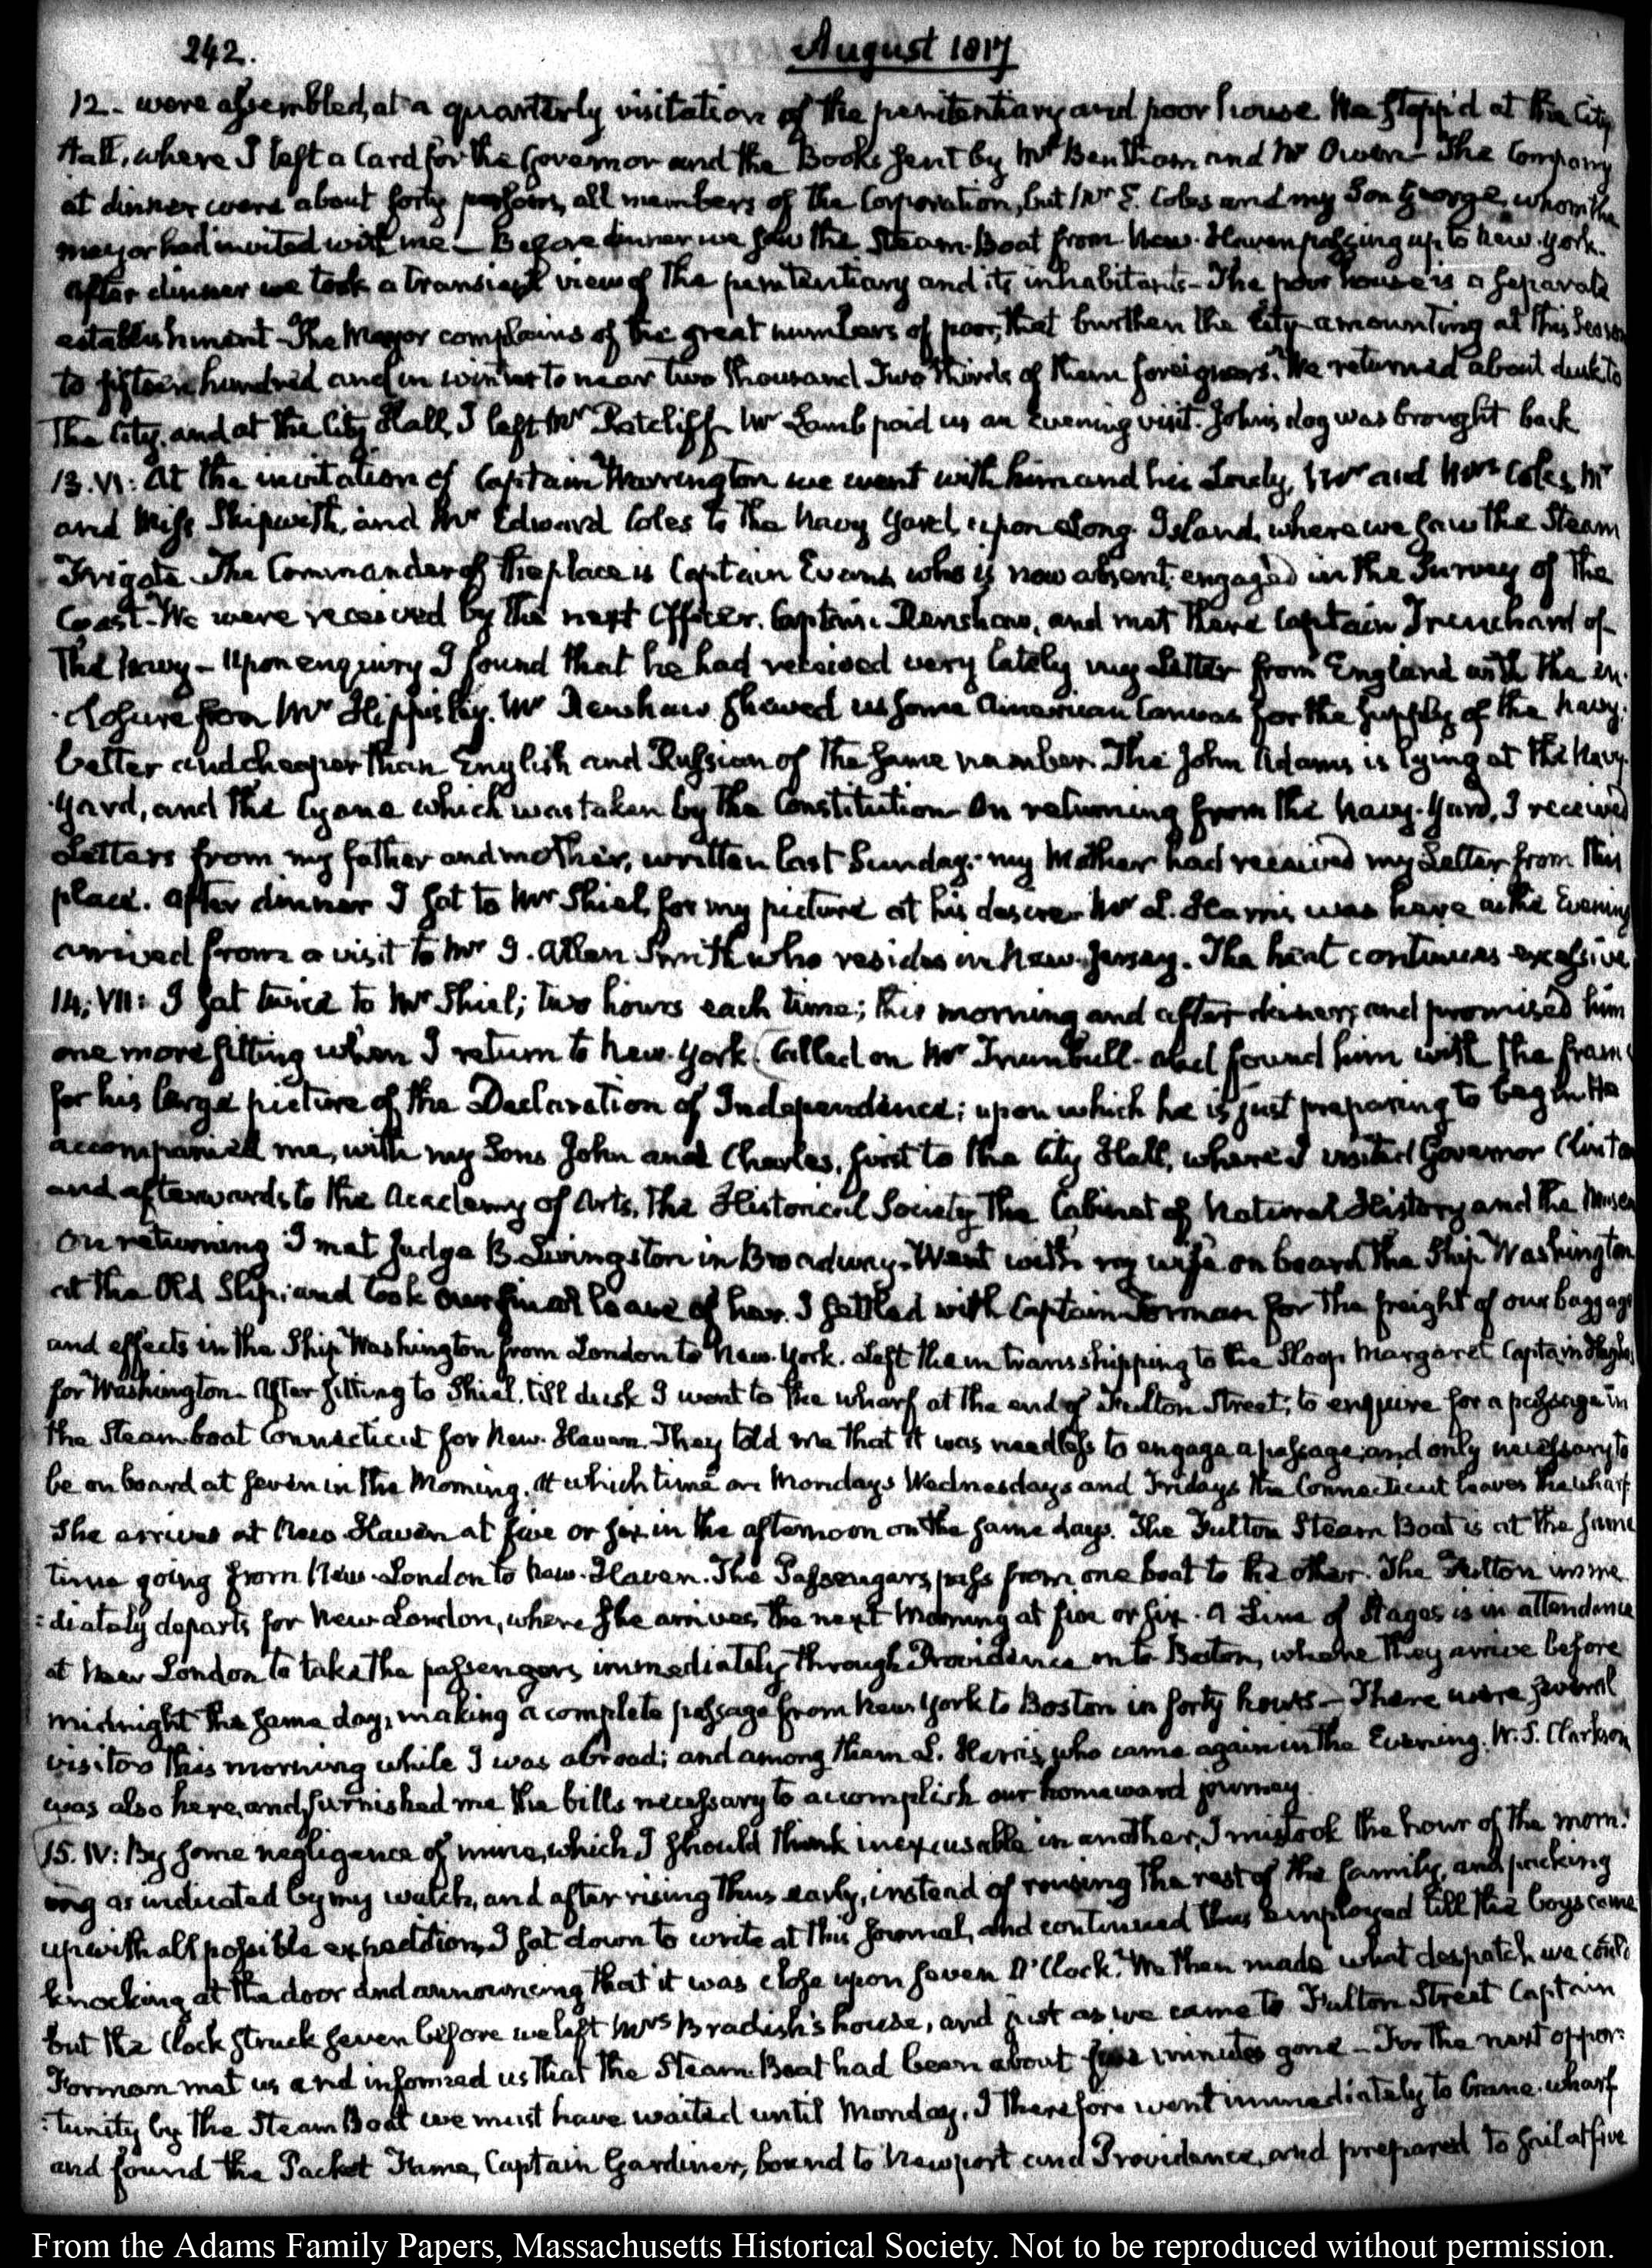 242.
August 1817
12. were assembled, at a quarterly visitation of the penitentiary and poor house. We stopp'd at the City
Hall, where I left a Card for the Governor and the Books sent by Mr Bentham and Mr Owen — The Company
at dinner were about forty persons, all members of the Corporation, but Mr E. Coles and my Son George, whom the
mayor had invited with me — Before dinner we saw the Steam-Boat from New-Haven passing up to New-York.
After dinner we took a transient view of the penitentiary and its inhabitants — The poor house is a separate
establishment — The Mayor complains of the great numbers of poor, that burthen the City amounting at this Season
to fifteen hundred and in winter to near two thousand. Two thirds of them foreigners. We returned about dusk to
the City, and at the City Hall, I left Mr Ratcliff. Mr Lamb paid us an evening visit. John's dog was brought back
13. VI: At the invitation of Captain Warrington we went with him and his Lady, Mr and Mrs Coles, Mr
and Miss Skipwith, and Mr Edward Coles to the Navy Yard, upon Long-Island, where we saw the Steam
Frigate. The Commander of the place is Captain Evans who is now absent engaged in the Survey of the
Coast. We were received by the next Officer, Captain Renshaw, and met there Captain Trenchard of
the Navy — Upon enquiry I found that he had received very lately my Letter from England with the en-
closure from Mr Hippisley. Mr Renshaw shewed us some American Canvas for the supply of the Navy.
better and cheaper than English and Russian of the same number. The John Adams is lying at the Navy-
yard, and the Cyane which was taken by the Constitution. On returning from the Navy-Yard, I received
Letters from my father and mother, written last Sunday. my Mother had received my Letter from this
place. After dinner I sat to Mr Shiel, for my picture at his desire. Mr L. Harris was here in the Evening
arrived from a visit to Mr J. Allen Smith who resides in New-Jersey. The heat continues excessive.
14. VII: I sat twice to Mr Shiel; two hours each time; this morning and after dinner; and promised him
one more sitting when I return to New-York. Called on Mr Trumbull and found him with the frame
for his large picture of the Declaration of Independence; upon which he is just preparing to begin. He
accompanied me, with my Sons John and Charles, first to the City Hall, where I visited Governor Clinton
and afterwards to the Academy of Arts, the Historical Society, the Cabinet of Natural History and the Museum
On returning I met Judge B. Livingston in Broadway. Went with my wife on board the Ship Washington
at the Old Slip; and took our final leave of her. I settled with Captain Forman for the freight of our baggage
and effects in the Ship Washington from London to New-York. Left them transshipping to the Sloop Margaret Captain
for Washington. After sitting to Shiel, till dusk I went to the wharf at the end of Fulton Street; to enquire for a passage in
the Steam boat Connecticut for New-Haven. They told me that it was needless to engage a passage; and only necessary to
be on board at seven in the Morning. At which time on Mondays Wednesdays and Fridays the Connecticut leaves the wharf.
She arrives at New-Haven at five or six in the afternoon on the same days. The Fulton Steam Boat is at the same
time going from New-London to New-Haven. The Passengers, pass from one boat to the other. The Fulton imme
:diately departs for New-London, where she arrives the next Morning at five or six. A Line of Stages is in attendance
at New London to take the passengers immediately through Providence on to Boston, where they arrive before
midnight the same day, making a complete passage from New York to Boston in forty hours — There were several
visitors this morning while I was abroad; and among them L. Harris, who came again in the Evening. W. S. Clarkson
was also here, and furnished me the bills necessary to accomplish our homeward journey.
15. IV: By some negligence of mine, which I should think inexcusable in another, I mistook the hour of the morn:
ing as indicated by my watch, and after rising thus early, instead of rousing the rest of the family, and packing
up with all possible expedition, I sat down to write at this Journal, and continued thus employed till the boys came
knocking at the door and announcing that it was close upon seven O'Clock. We then made what despatch we could
but the Clock struck seven before we left Mrs Bradish's house, and just as we came to Fulton Street Captain
Forman met us and informed us that the Steam-Boat had been about five minutes gone — For the next oppor:
:tunity by the Steam Boat we must have waited until Monday. I therefore went immediately to Crane-wharf
and found the Packet Fame, Captain Gardiner, bound to Newport and Providence, and prepared to sail at five
From the Adams Family Papers, Massachusetts Historical Society. Not to be reproduced without permission.